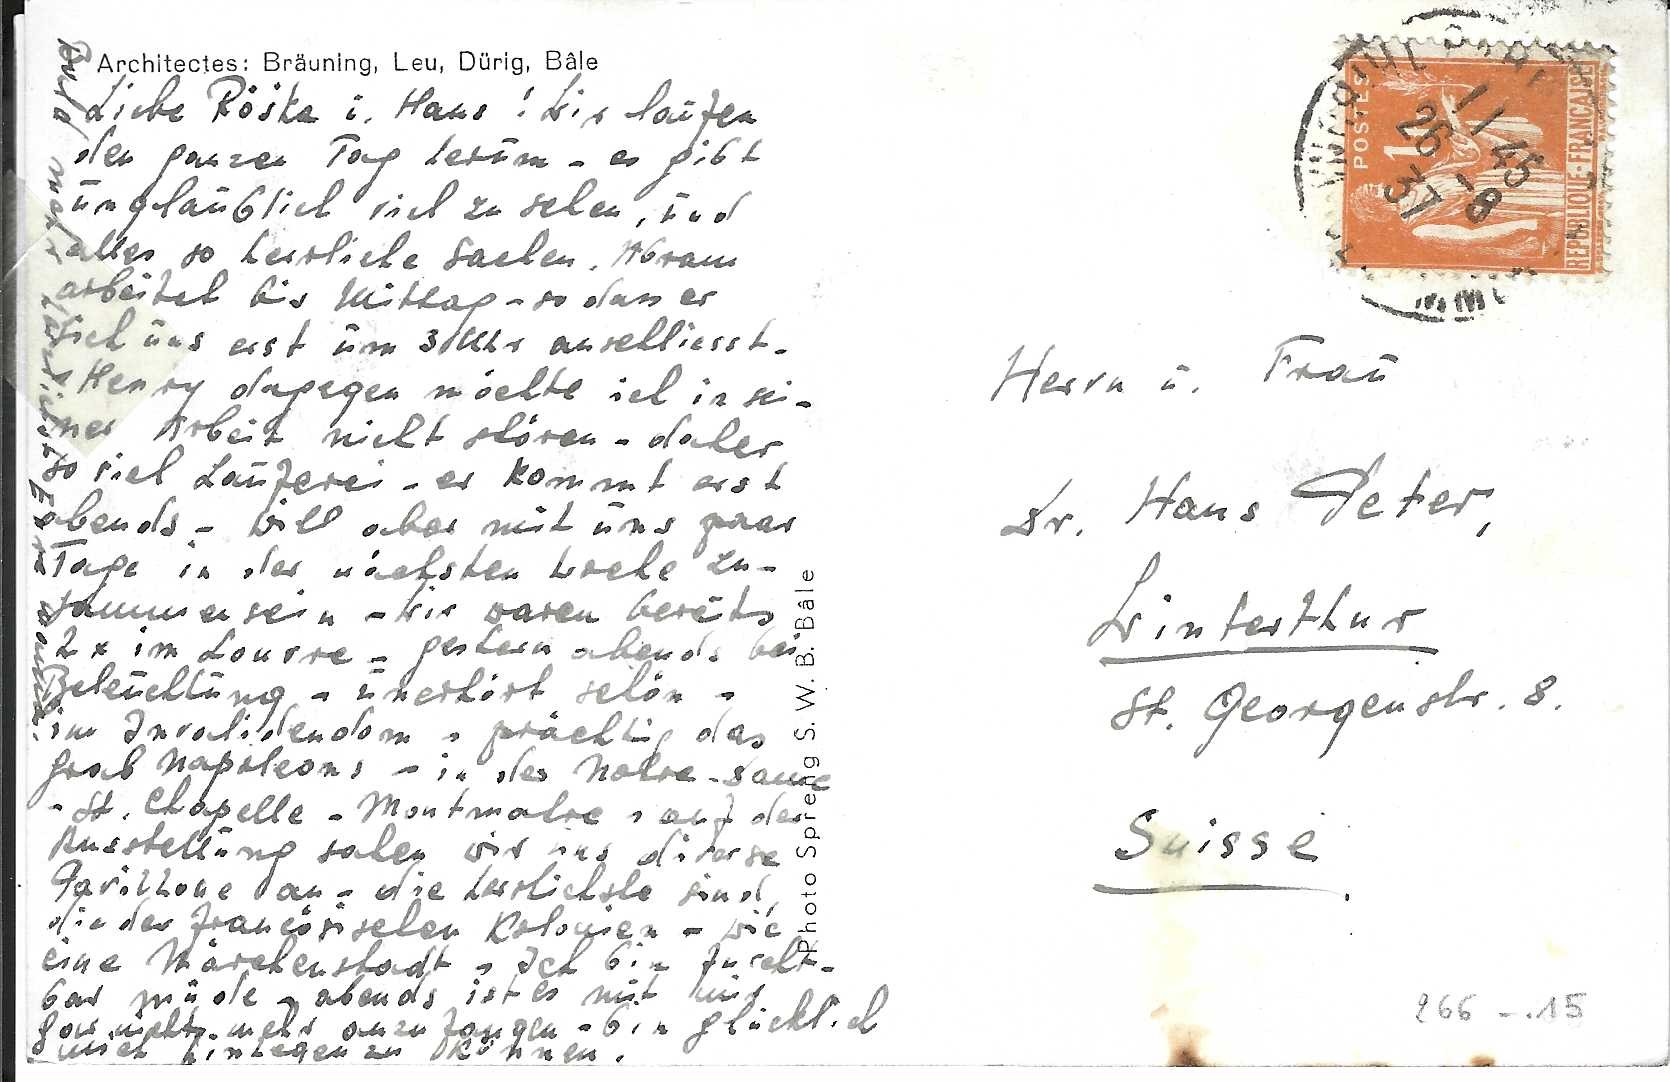 Architectes: Bräuning, Leu, Dürig, Bâle
Liebe Röska u. Hans! Wir laufen
den ganzen Tag herum - es gibt
unglaublich viel zu sehen, und
alles so herrliche Sachen. Abram
arbeitet bis Mittag - so dass er
sich uns erst um 3 Uhr anschliesst.
Henry dagegen möchte ich in sei-
ner Arbeit nicht stören - daher
so viel Lauferei - er kommt erst
abends - will aber mit uns paar
Tage in der nächsten Woche zu-
sammen sein - wir waren bereits
2 x im Louvre - gestern abends bei
Beleuchtung - unerhört schön -
im Invalidendom - prächtig das
Grab Napoleons - in der Notre-Dame
- St. Chapelle - Montmatre - auf der
Ausstellung sahen wir uns diverse
Pavillone an - die herrlichste sind
die der französischen Kolonien - wie
eine Märchenstadt - Ich bin furcht-
bar müde - abends ist es mit mir
gar nichts mehr anzufangen - bin glücklich
mich hinlegen zu können.
Photo Spreng S. W. B. Bâle
POSTES
1F
REPUBLIQUE-FRANÇAISE
11 45
26 - 8
37
Herrn u. Frau
Dr. Hans Peter,
Winterthur
St. Georgenstr. 8.
Suisse.
266 -.15